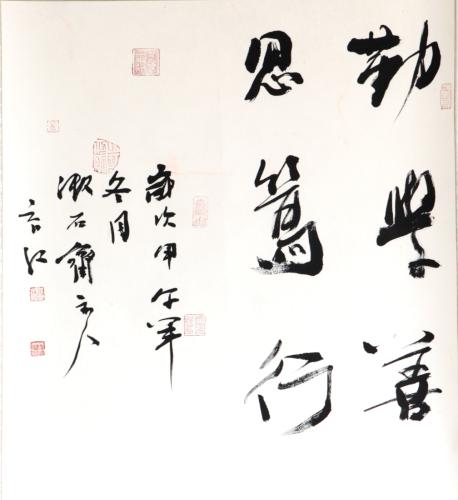 勤學善
思篤行
歲次甲午年
冬月
漱石齋主人